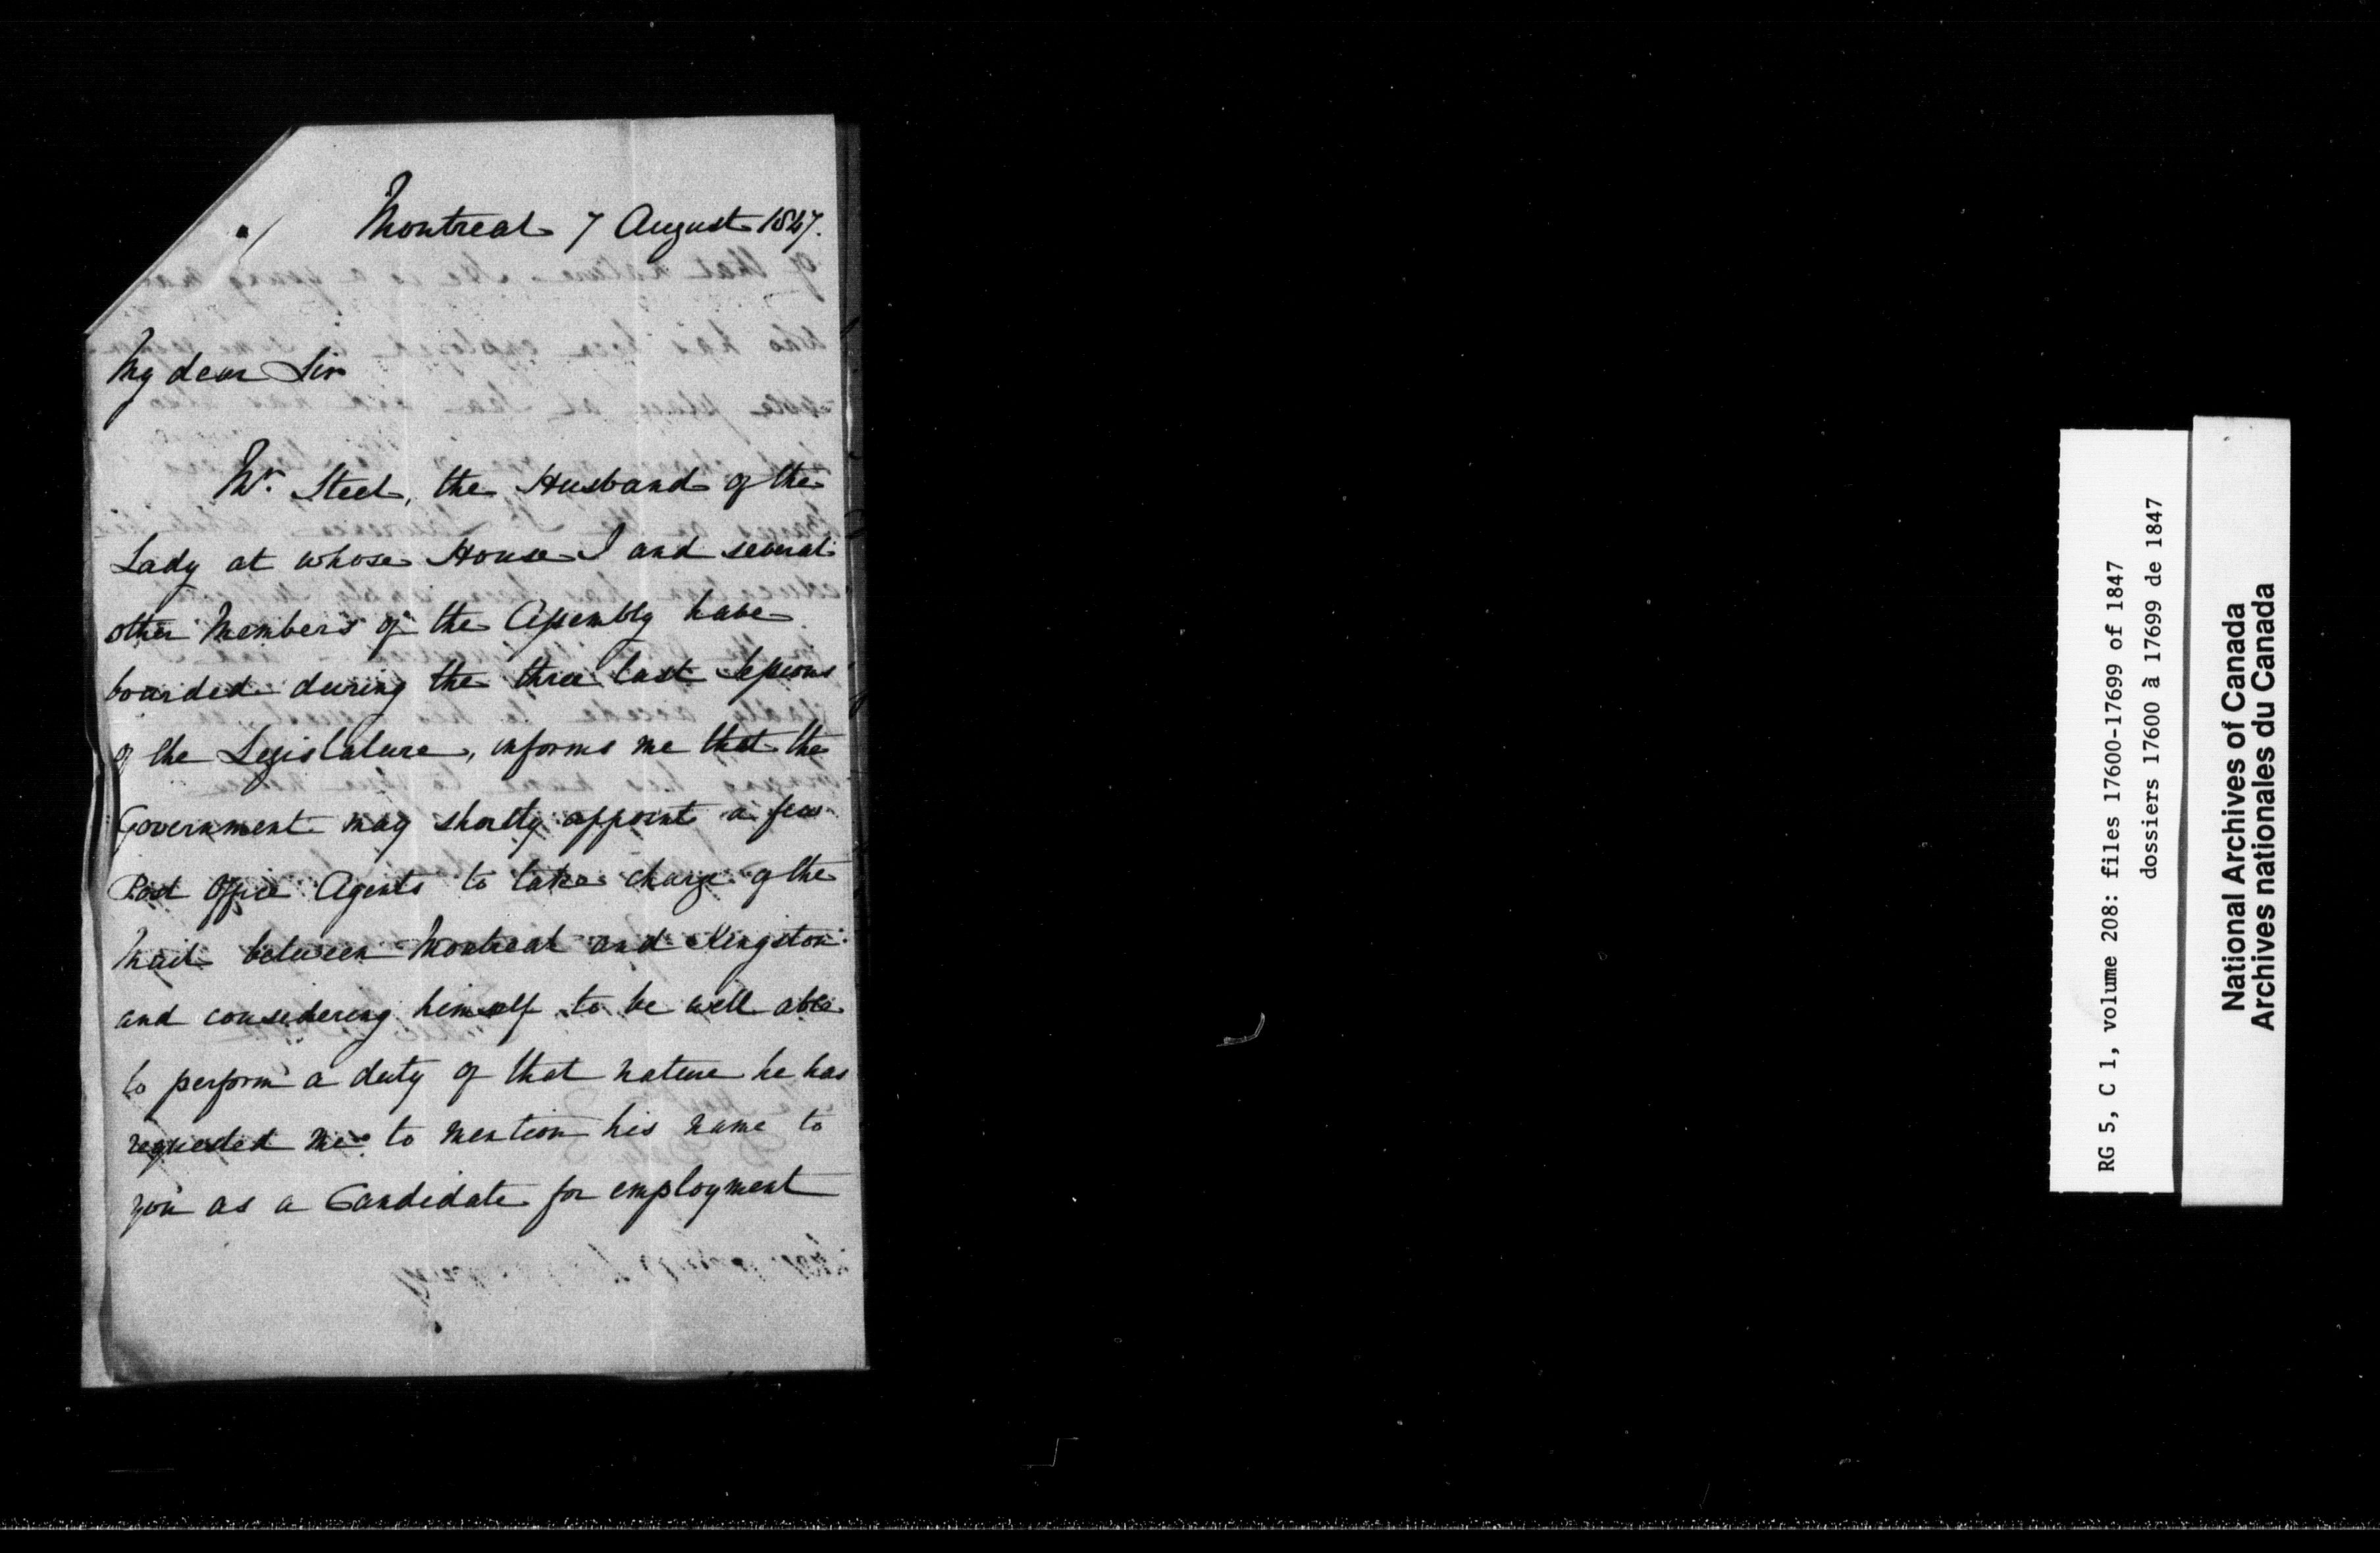 Montreal 7 August 1847.
My dear Sir
Mr. Steel, the Husband of the
Lady at whose House I and several
other Members of the Assembly have
boarded during the three last Sessions
of the Legislature, informs me that the
Government may shortly appoint a few
Post Office Agents to take charge of the
Mail between Montreal and Kingston
and considering himself to be well able
to perform a duty of that nature he has
requested me to mention his name to
you as a Candidate for employment
RG 5, C 1, volume 208: files 17600-17699 of 1847
dossiers 17600 à 17699 de 1847
National Archives of Canada
Archives nationales du Canada